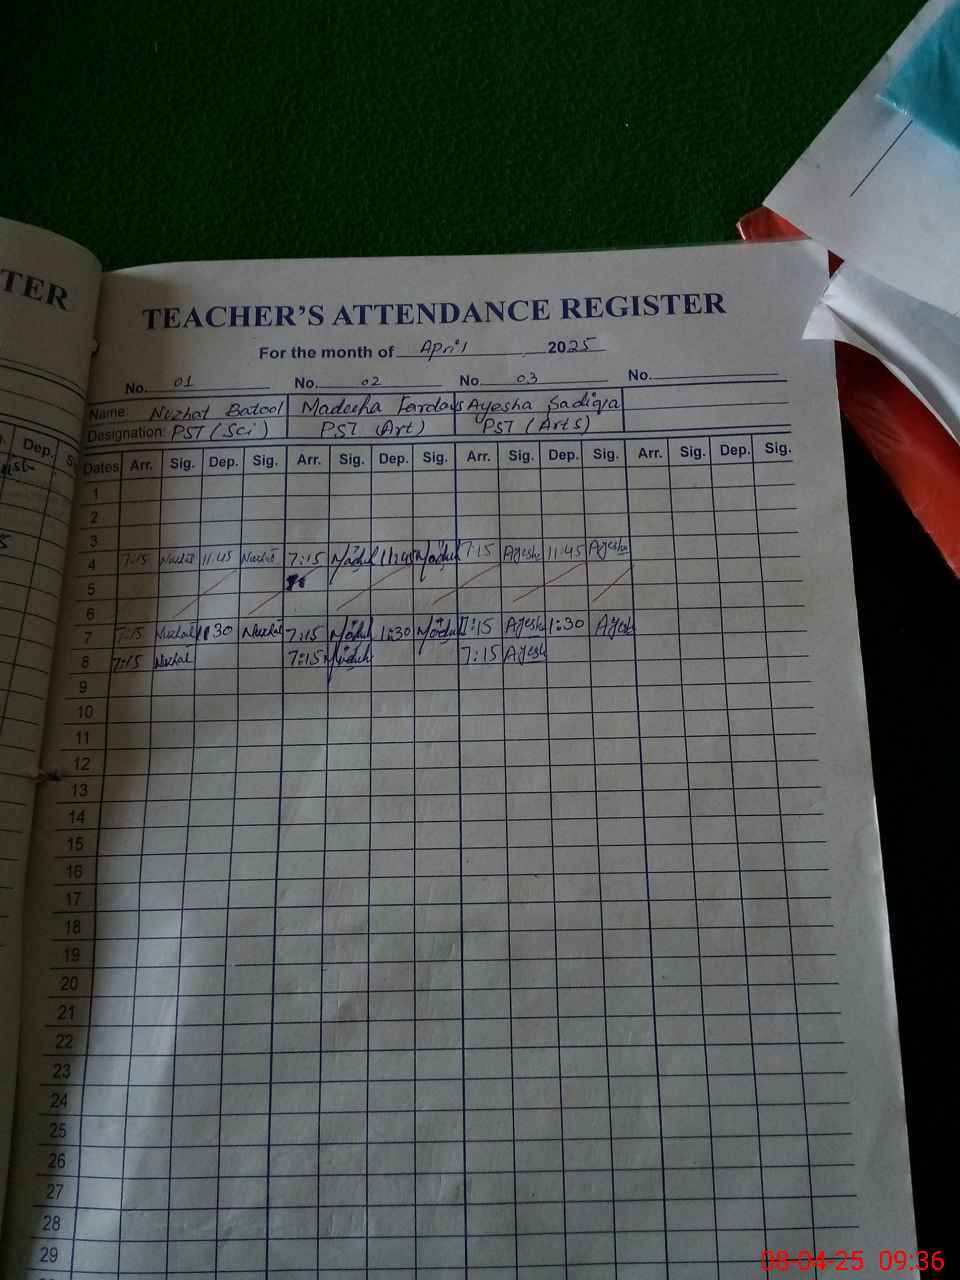 TER
TEACHER'S ATTENDANCE REGISTER
For the month of April 2025
No. 01 No. 02 No. 03 No.
Name: Nuzhat Batool Madeeha Fardous Ayesha Sadiqa
Designation: PST (Sci) PST (Art) PST (Arts)
Dep.
Dates Arr. Sig. Dep. Sig. Arr. Sig. Dep. Sig. Arr. Sig. Dep. Sig. Arr. Sig. Dep. Sig.
1
2
3
4 7:15 Nuzhat 11:45 Nuzhat 7:15 11:45 7:15 Ayesha 11:45 Ayesha
5
6
7 7:15 Nuzhat 1:30 Nuzhat 7:15 1:30 7:15 Ayesha 1:30 Ayesha
8 7:15 Nuzhat 7:15 7:15 Ayesha
9
10
11
12
13
14
15
16
17
18
19
20
21
22
23
24
25
26
27
28
29
08-04-25 09:36